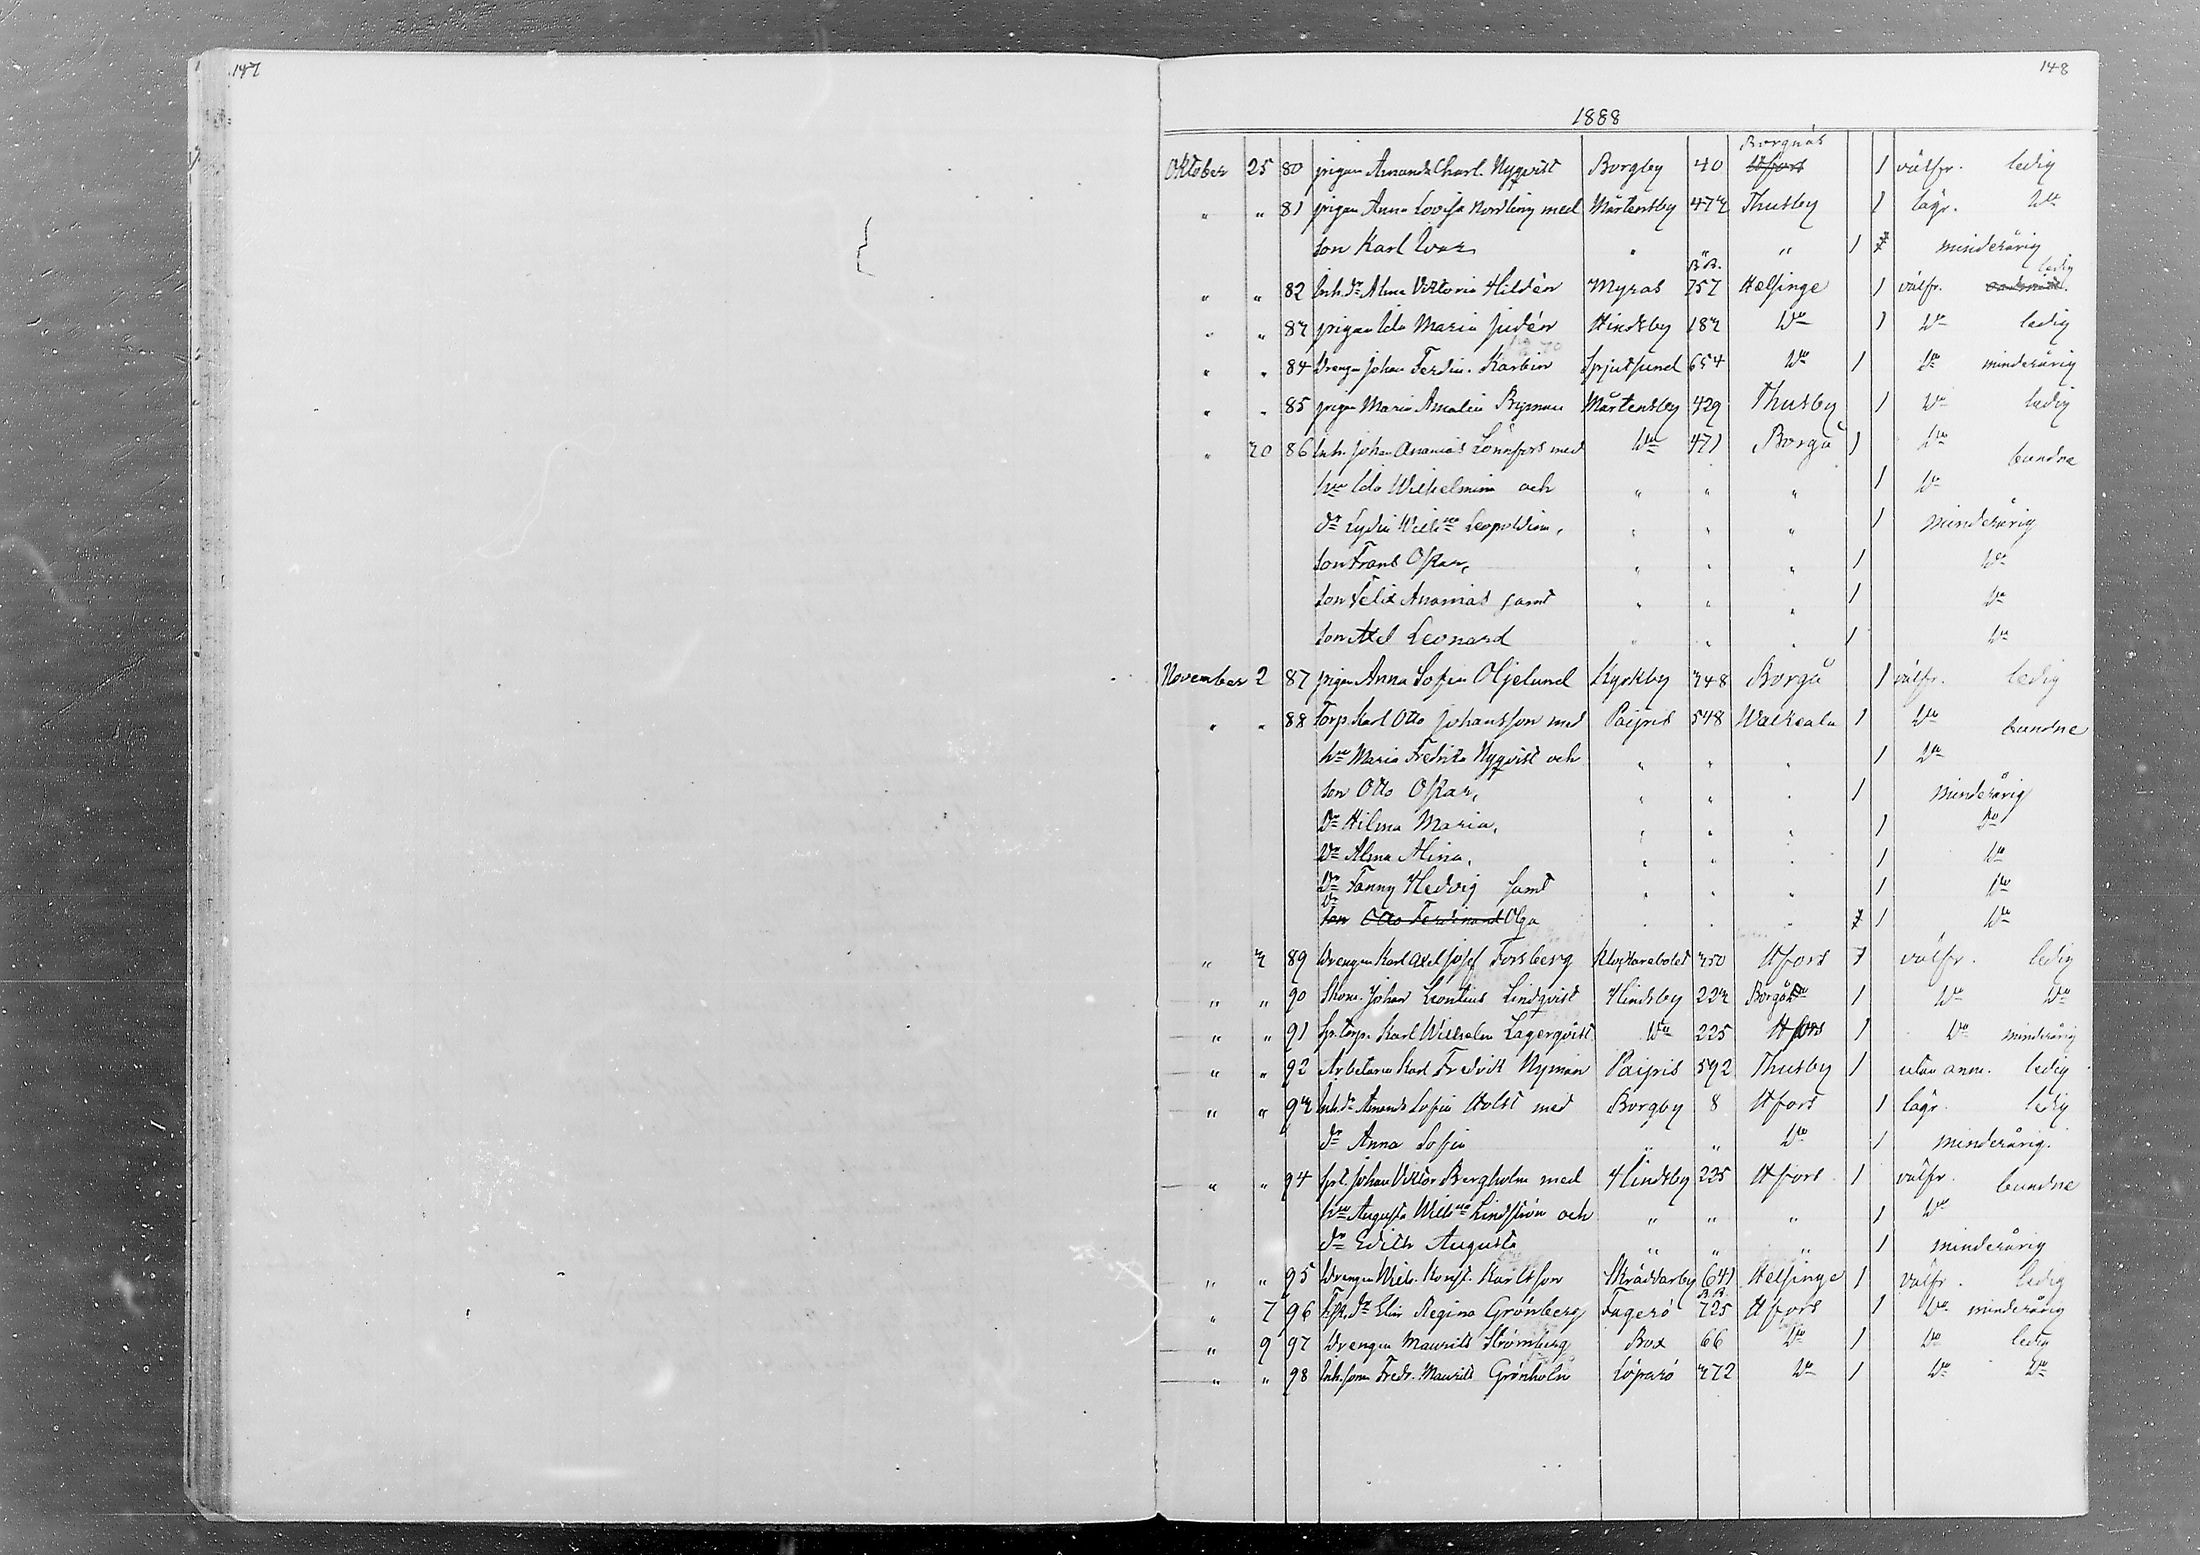 147
148
1888
Oktober 25 80 pigan Amanda Charl. Nyqvist Borgby 40 Hfors Borgnäs 1 välfr. ledig
" " 81 pigan Anna Lovisa Nordling med Mårtensby 473 Thusby 1 lägr. D:o
son Karl Ivar " " " 1 minderårig
" " 82 Inh. d:r Alma Viktoria Hildén Myras B.B. 757 Helsinge 1 välfr. ledig
" " 83 pigan Ida Maria Judén Hindsby 183 D:o 1 D:o ledig
" " 84 Drengen Johan Ferdin. Karbin Spjutsund 654 D:o 1 D:o minderårig
" " 85 pigan Maria Amalia Ryman Mårtensby 429 Thusby 1 D:o ledig
" 30 86 Inh. Johan Ananias Lönnfors med D:o 471 Borgå 1 D:o bundne
h:u Ida Wilhelmina och " " " 1 D:o
d:r Lydia Wilh:na Leopoldina, " " " 1 minderårig
son Frans Oskar, " " " 1 D:o
son Felix Ananias samt " " " 1 D:o
son Axel Leonard " " " 1 D:o
November 2 87 pigan Anna Sofia Oljelund Kyrkby 348 Borgå 1 välfr. ledig
" " 88 Torp. Karl Otto Johansson med Paipis 548 Walkeala 1 D:o bundne
h:u Maria Fredrika Nyqvist och " " " 1 D:o
son Otto Oskar, " " " 1 minderårig
D:r Hilma Maria, " " " 1 D:o
D:r Alma Alina, " " " 1 D:o
D:r Fanny Hedvig samt " " " 1 D:o
son Otto Ferdinand D:r Olga " " " 1 D:o
" 3 89 Drengen Karl Axel Josef Forsberg Klockarebolet 350 Hfors 1 välfr. ledig
" " 90 Skom. Johan Leontius Lindqvist Hindsby 223 Borgå 1 D:o D:o
" " 91 Sp. torp. Karl Wilhelm Lagerqvist D:o 225 Hfors 1 D:o minderårig
" " 92 Arbetaren Karl Fredrik Nyman Paipis 592 Thusby 1 utan anm. ledig
" " 93 Inh. d:r Amanda Sofia Holst med Borgby 8 Hfors 1 lägr. ledig
d:r Anna Sofia " " D:o 1 minderårig.
" " 94 Johan Viktor Bergholm med Hindsby 225 Hfors 1 välfr. bundne
h:u Augusta Wilh:na Lindström och " " " 1 D:o
d:r Edith Augusta " " " 1 minderårig
" " 95 Drengen Wilh. Konst. Karlsson Skräddarby 641 Helsinge 1 välfr. ledig
" 7 96 d:r Elin Regina Grönberg Fagerö B.B. 725 Hfors 1 D:o minderårig
" 9 97 Drengen Maurits Strömberg Box 66 D:o 1 D:o ledig
" " 98 Inh. son Fredr. Maurits Grönholm Löparö 372 D:o 1 D:o D:o